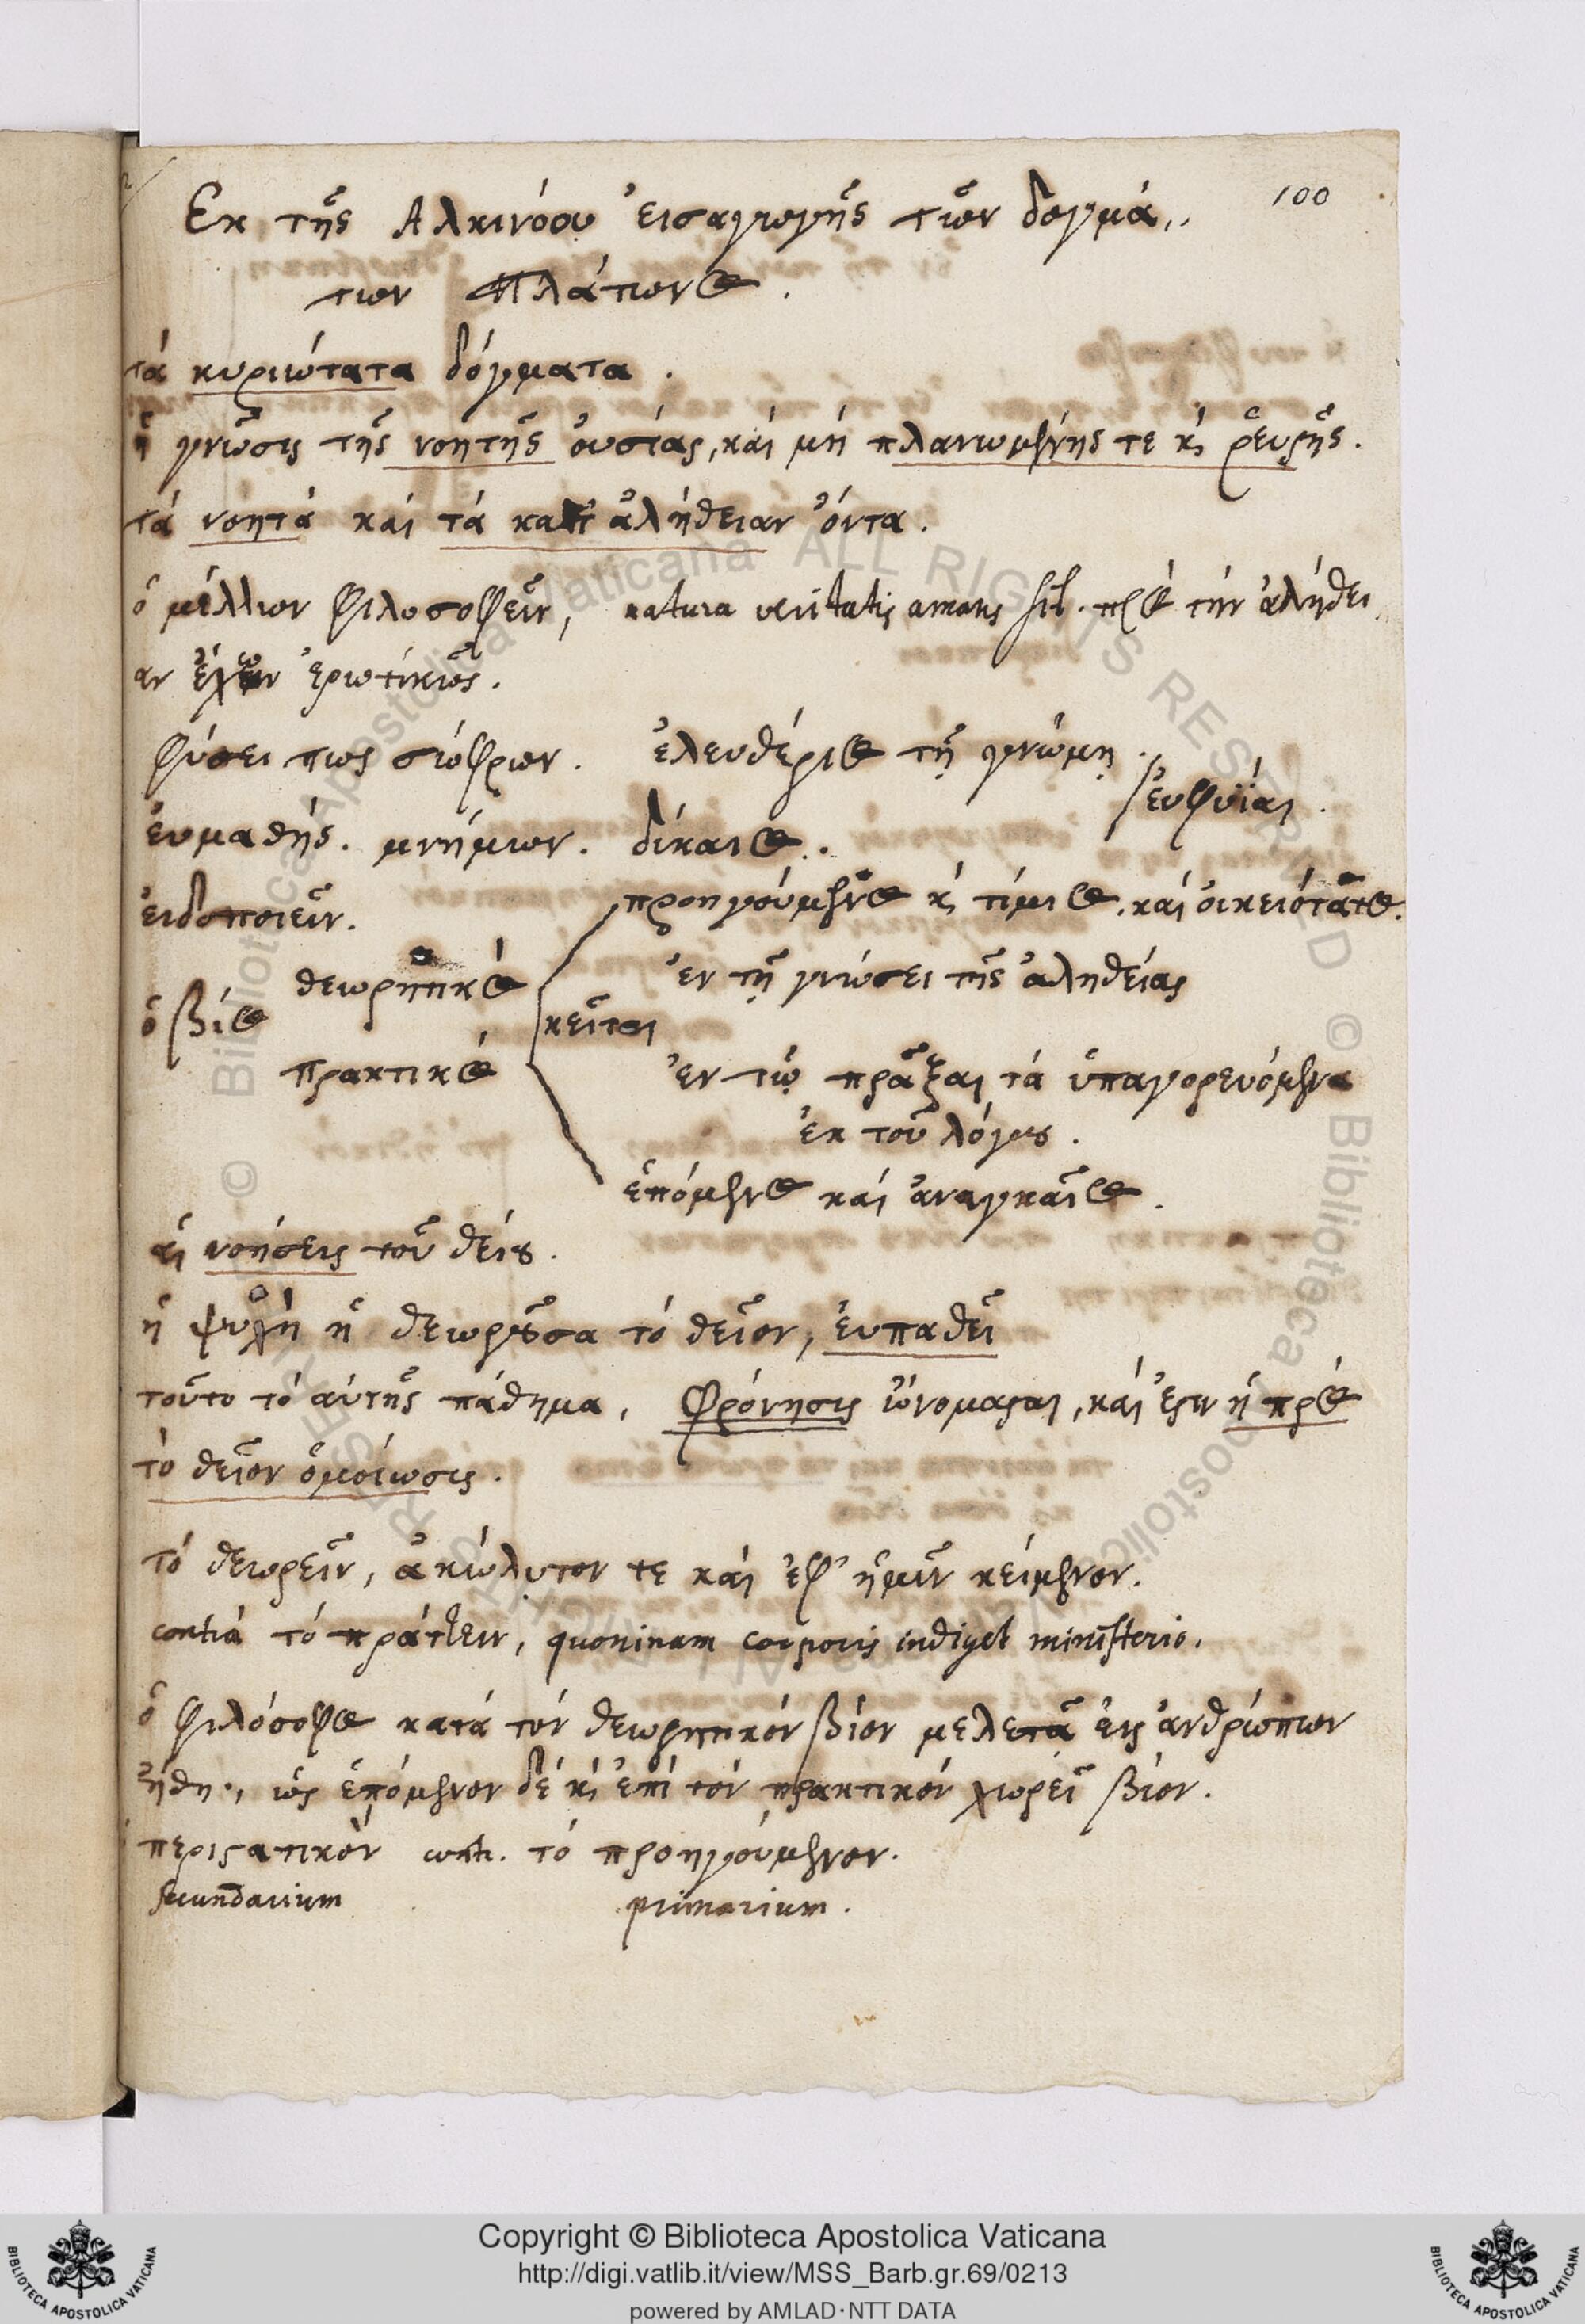 100
Ἐκ τῆς Ἀλκινόου ἐισαγωγῆς τῶν δογμά,,
των Πλάτωνος.
τά κυριώτατα δόγματα.
ἡ γνῶσις τῆς νοητῆς ὀυσίας, καί μή πλανωμένης τε κ, ῥευςῆς.
τά νοητά καί τά κατ' ἀλήθειαν ὄντα.
ὁ μέλλων φιλοσοφεῖν, natura veritatis amans sit. πρός τήν ἀλήθει,
αν ἔχων ἐρωτικῶς.
φύσει πως σώφρων. ἐλευθέριος τῇ γνώμῃ.
ἐυφυΐαι.
ἐυμαθής. μνήμων. δίκαιος..
ἐιδοποιεῖν.
προηγούμενος κ, τίμιος, καί ὀικειότατος.
θεωρητικός
ἐν τῇ γνώσει τῆς ἀληθείας
ὁ βίος
κεῖται
πρακτικός
ἐν τῷ πρᾶξαι τά ὑπαγορευόμενα
ἐκ τοῦ λόγου.
ἑπόμενος καί ἀναγκαῖος.
αἱ νοήσεις τοῦ θείου.
ἡ ψυχή ἡ θεωροῦσα τό θεῖον, ἐυπαθεῖ
τοῦτο τό αὐτῆς πάθημα, φρόνησις ὠνόμαςαι, καί ἔςιν ἡ πρός
τὸ θεῖον ὁμοίωσις.
τό θεωρεῖν, ἀκώλυτον τε καί ἐφ' ἡμῖν κείμενον.
contra τό πράττειν, quoninam corporis indiget ministerio.
ὁ φιλόσοφος κατά τόν θεωρητικόν βίον μελετᾷ ἐις ἀνθρώπων
ἤθη., ὡς ἑπόμενον δέ κ, ἐπί τόν πρακτικόν χωρεῖ βίον.
περιςατικόν contr. τό προηγούμενον.
secundarium primarium.
© Biblioteca Apostolica Vaticana ALL RIGHTS RESERVED
Copyright © Biblioteca Apostolica Vaticana
http://digi.vatlib.it/view/MSS_Barb.gr.69/0213
powered by AMLAD·NTT DATA
BIBLIOTECA APOSTOLICA VATICANA
BIBLIOTECA APOSTOLICA VATICANA